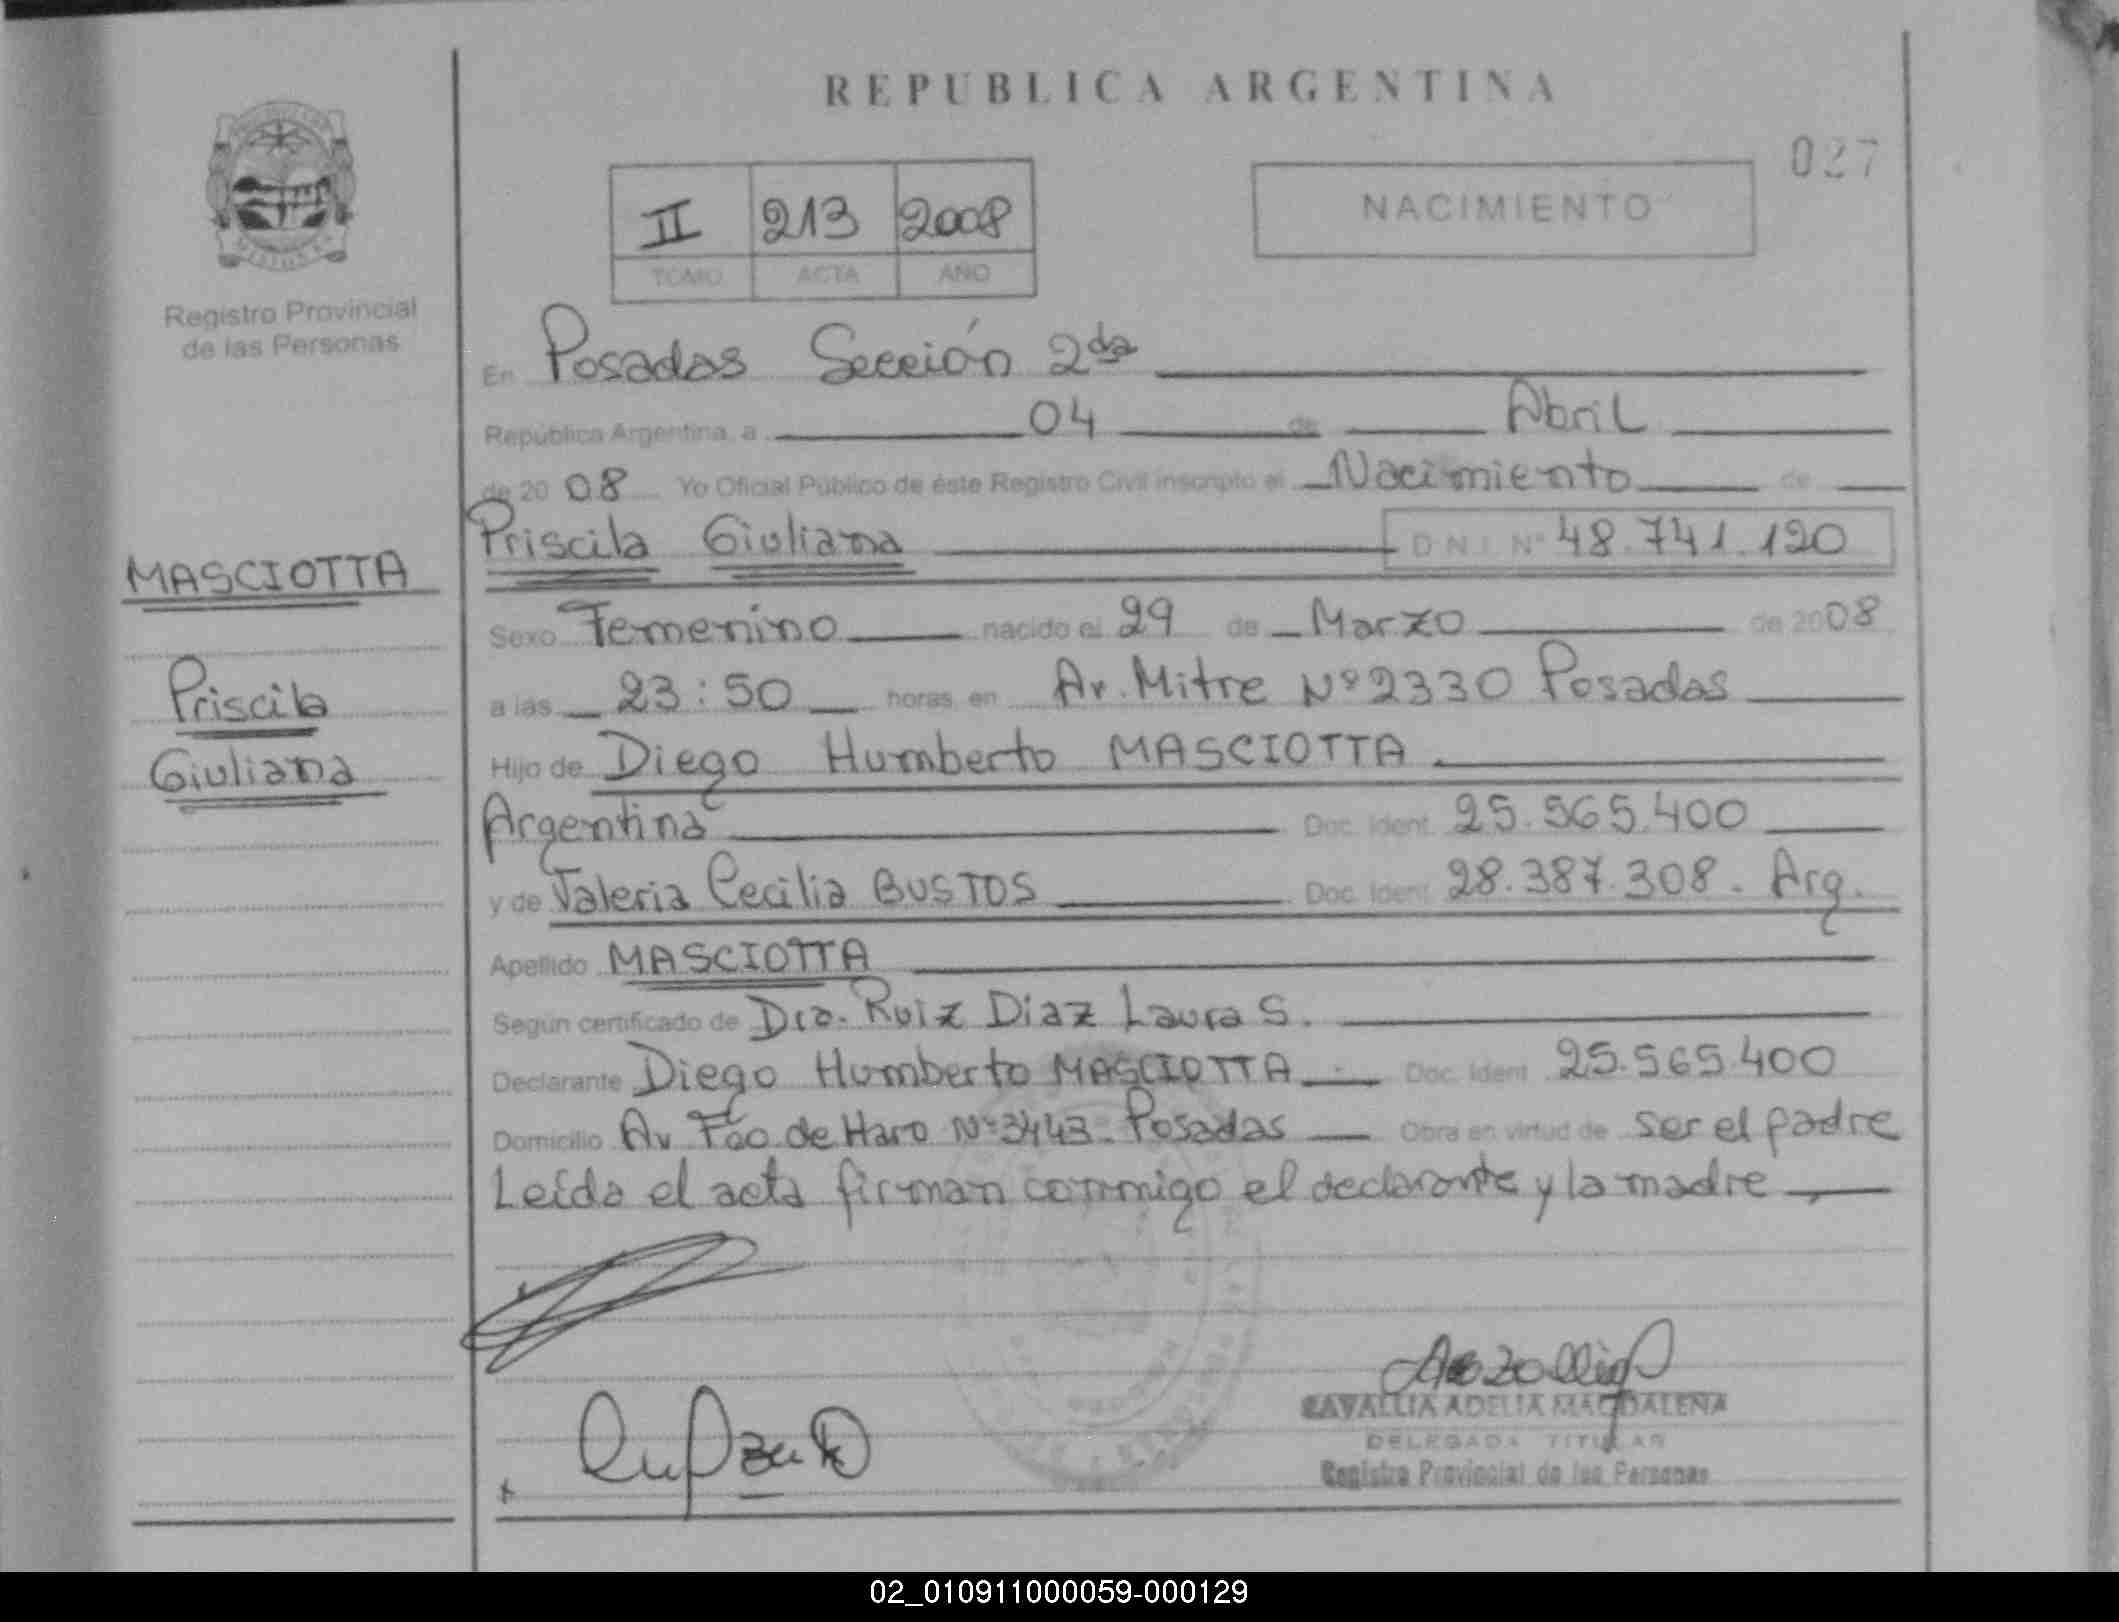 REPUBLICA ARGENTINA
027
II 213 2008
TOMO ACTA AÑO
NACIMIENTO
Registro Provincial
de las Personas
En Posadas Sección 2da
República Argentina, a 04 de Abril
de 2008 Yo Oficial Público de éste Registro Civil inscripto el Nacimiento de
Priscila Giuliana D.N.I. Nº 48.741.120
MASCIOTTA
Priscila
Giuliana
Sexo Femenino nacido el 29 de Marzo de 2008
a las 23:50 horas, en Av. Mitre Nº 2330 Posadas
Hijo de Diego Humberto MASCIOTTA
Argentina Doc. Ident. 25.565.400
y de Valeria Cecilia BUSTOS Doc. Ident. 28.387.308. Arg.
Apellido MASCIOTTA
Según certificado de Dra. Ruiz Diaz Laura S.
Declarante Diego Humberto MASCIOTTA Doc. Ident. 25.565.400
Domicilio Av Fco de Haro Nº 3443 Posadas Obra en virtud de ser el padre
Leída el acta firman conmigo el declarante y la madre
CAVALLIA ADELIA MAGDALENA
DELEGADA TITULAR
Registro Provincial de las Personas
02_010911000059-000129